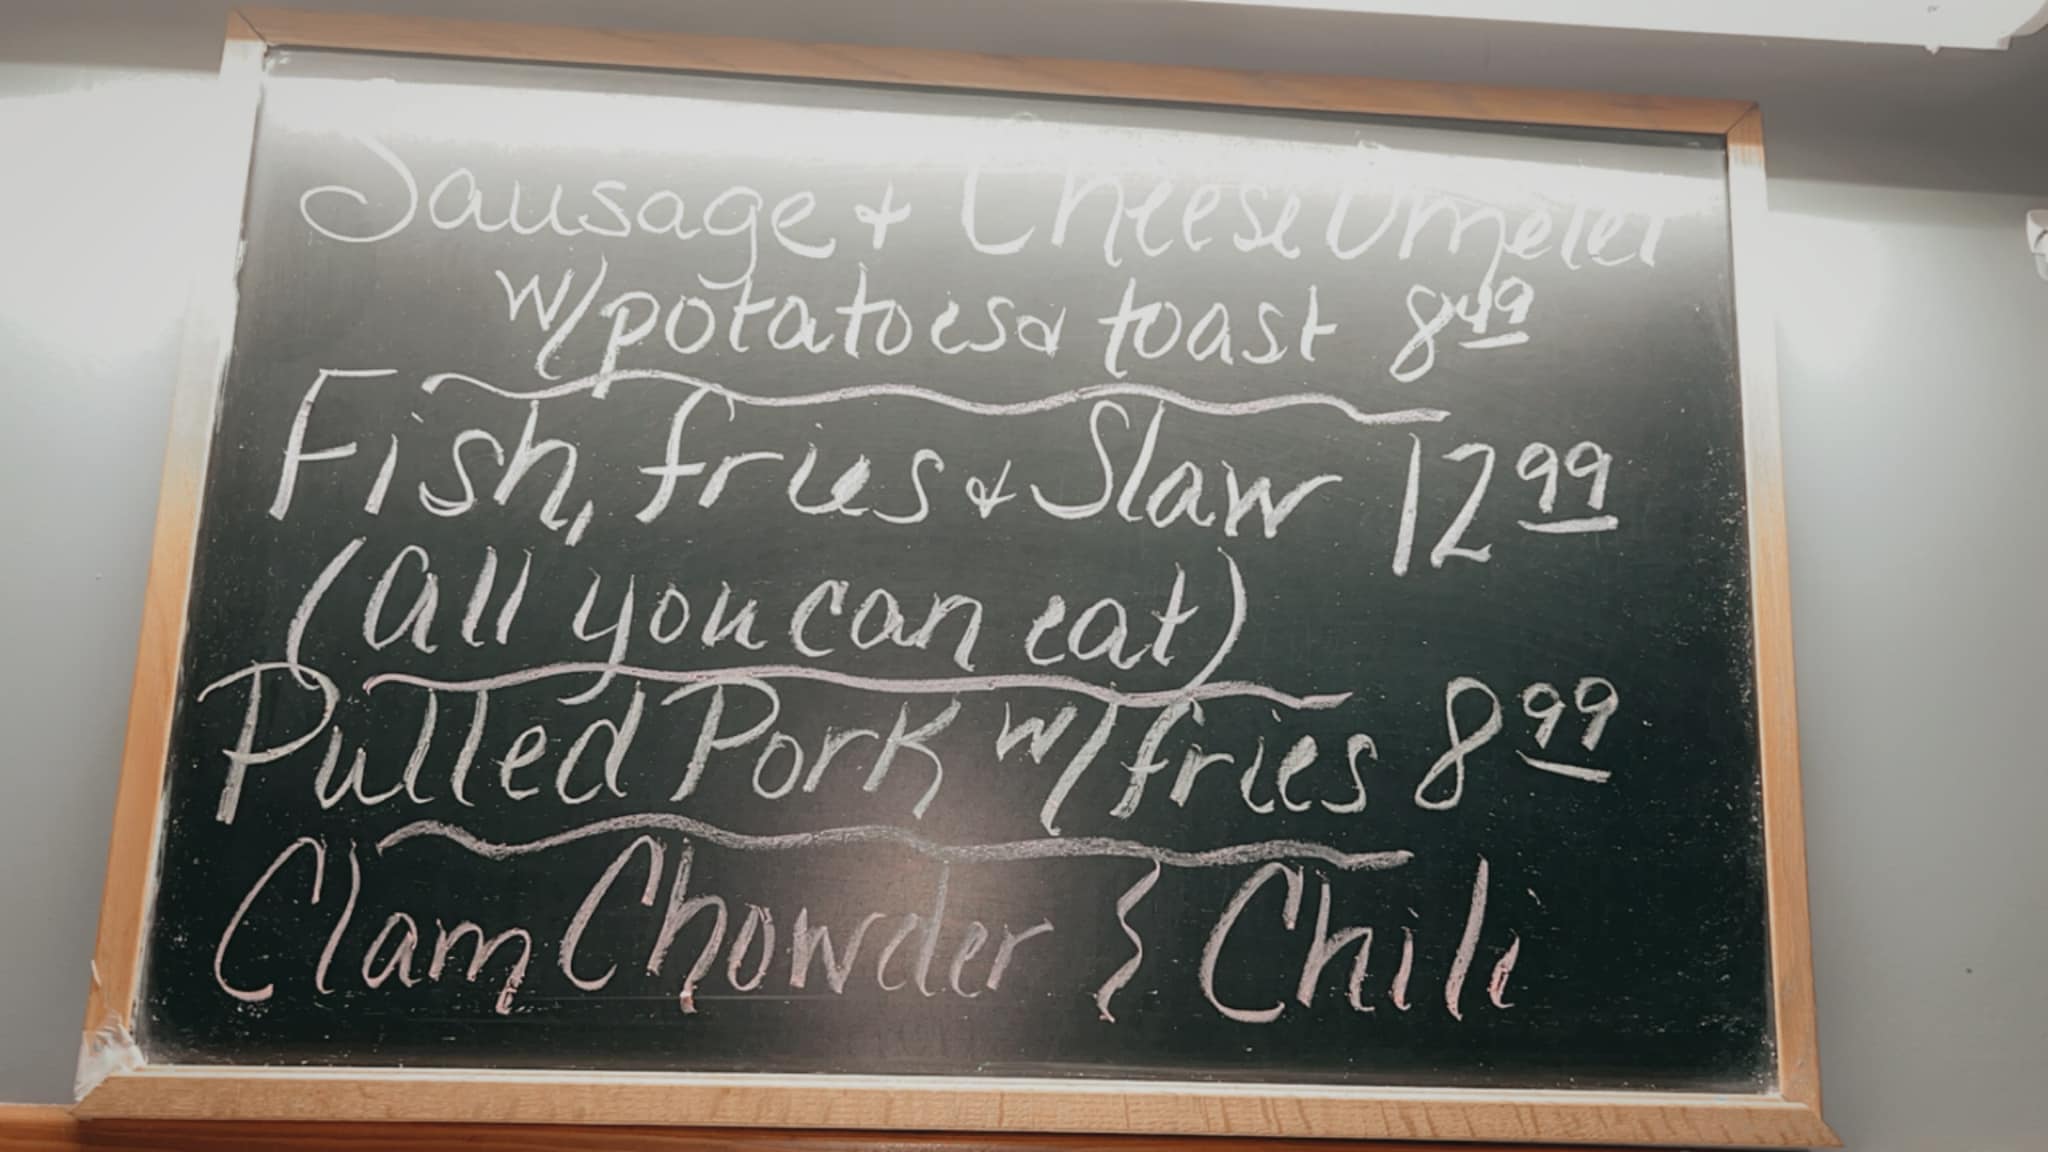 Sausage & Cheese Omelet
w/potatoes & toast 8 49
Fish, fries & Slaw 12 99
(all you can eat)
Pulled Pork w/fries 8 99
Clam Chowder & Chili